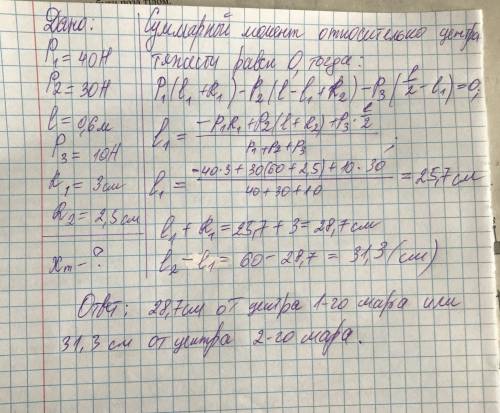 Дано:
P₁ = 40Н
P₂ = 30Н
l = 0,6м
P₃ = 10Н
R₁ = 3см
R₂ = 2,5см
xₘ - ?
Суммарный момент относительно центра
тяжести равен 0, тогда:
P₁(l₁+R₁)-P₂(l-l₁+R₂)-P₃(l/2-l₁)=0;
l₁ = (-P₁R₁+P₂(l+R₂)+P₃·l/2)/(P₁+P₂+P₃);
l₁ = (-40·3+30(60+2,5)+10·30)/(40+30+10) = 25,7см
l₁ + R₁ = 25,7 + 3 = 28,7см
l₂ - l₁ = 60 - 28,7 = 31,3(см)
Ответ: 28,7см от центра 1-го шара или
31,3 см от центра 2-го шара.